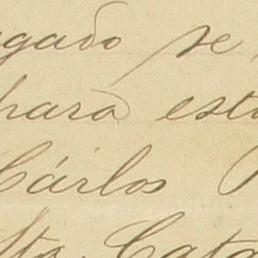 gado se
hara est
Cárlos
Sta. Cata